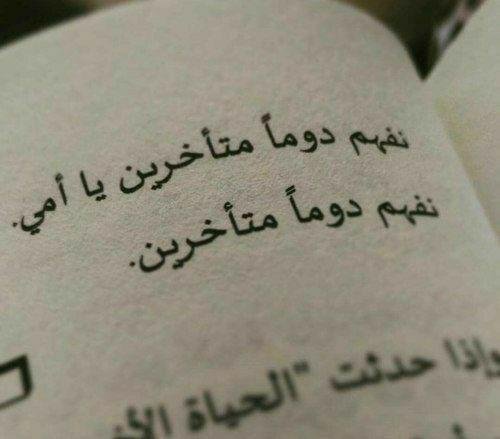 نفهم دوماً متأخرين يا أمي.
نفهم دوماً متأخرين.
وإذا حدثت "الحياة